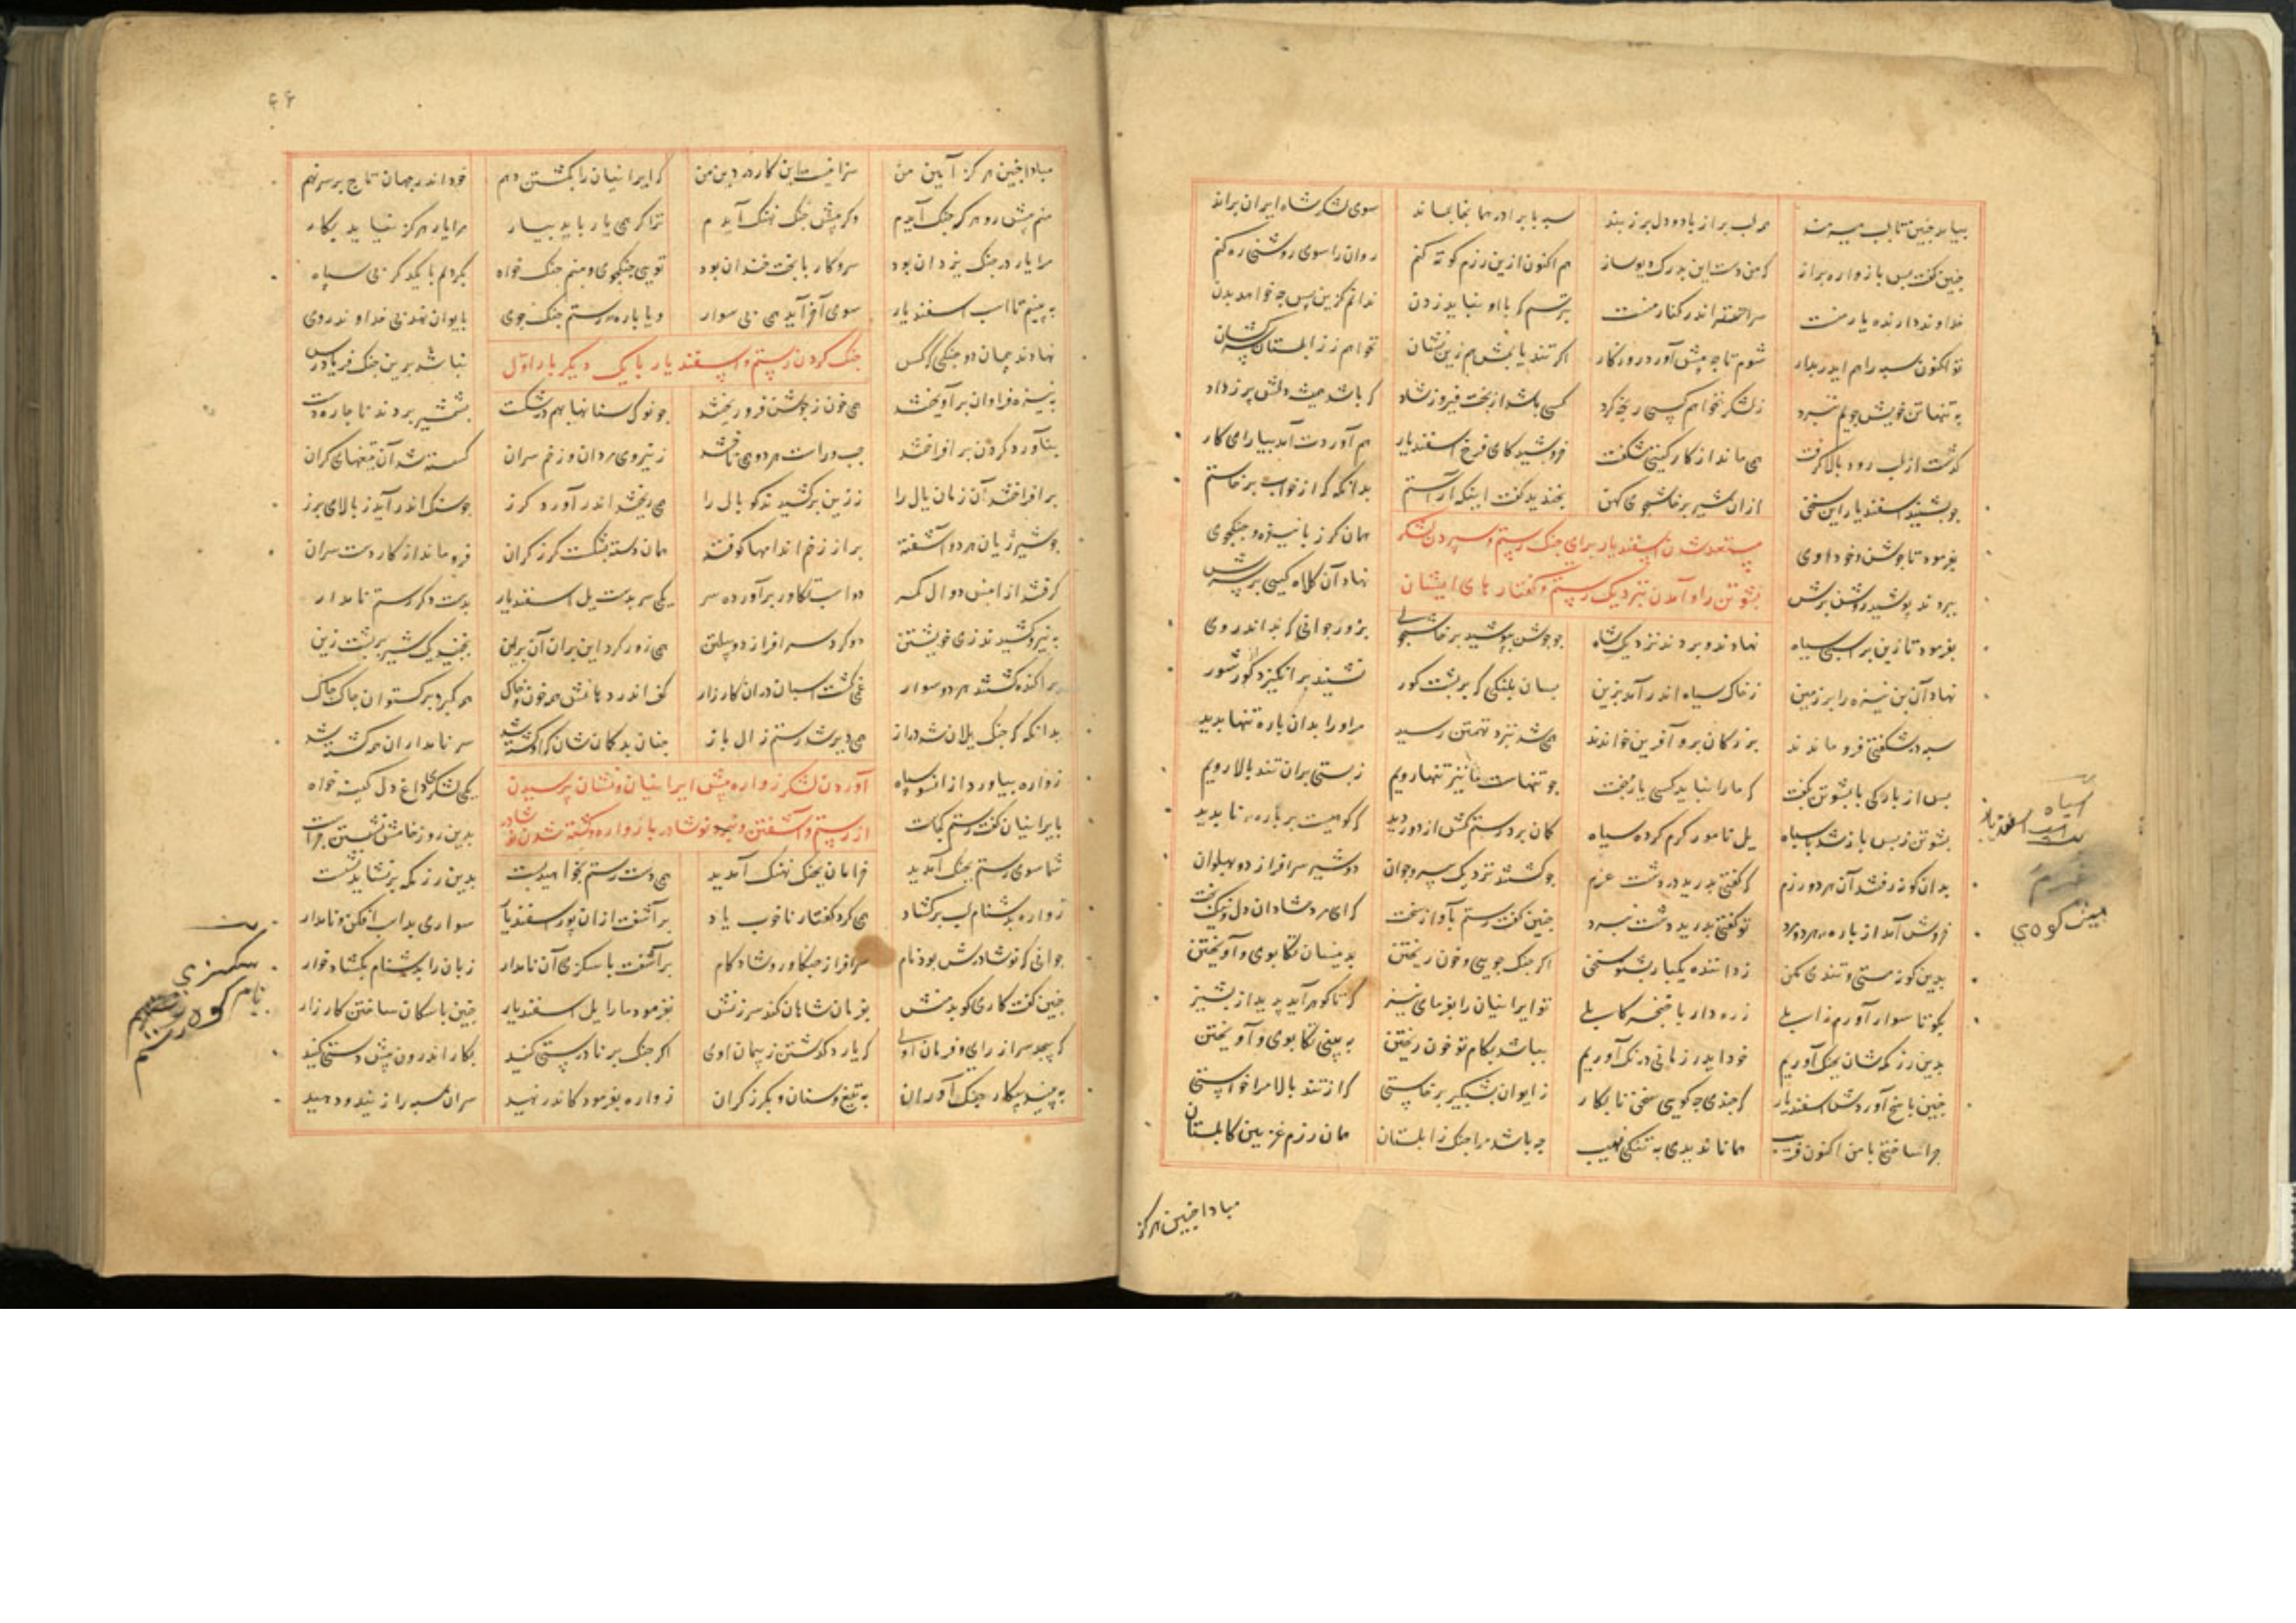 بیامد چنین تا لب هیرمند همه لب پر از باد و دل پر ز پند سپه با برادر همانجا بماند سوی لشکر شاه ایران براند
چنین گفت پس با زواره براز که من دست این بدرگ دیوساز هم اکنون ازین رزم کوته کنم روان را سوی روشنی ره کنم
خداوند دارنده یار منست سر اندر کنار منست بترسم که با او نیاید زدن ندانم کزین پس چه خواهد بدن
تو اکنون سپه را هم ایدر بدار شوم تا چه پیش آورد روزگار اگر تند یابمش هم زین نشان نخواهم ز زابلستان سرکشان
به تنها تن خویش جویم نبرد ز لشکر نخواهم کسی رنجه کرد کسی باشد از بخت فیروز شاد که باشد همیشه دلش پر ز داد
گذشت از لب رود بالا گرفت همی ماند از کار گیتی شگفت خروشید کای فرخ اسفندیار هم آوردت آمد بیارای کار
چو بشنید اسفندیار این سخن ازان شیر پرخاشجوی کهن بخندید گفت اینک آراستم بدانگه که از خواب برخاستم
بفرمود تا جوشن و خود اوی همان گرز با نیزه و جنگجوی
مستعد شدن اسپندیار برای جنگ رستم و سپردن لشکر
ببردند پوشید روشن برش نهاد آن کلاه کیی بر سرش
بشوتن را و آمدن نزدیک رستم و گفتارهای ایشان
بفرمود تا زین بر اسپ سیاه نهادند و بردند نزدیک شاه چو جوشن بپوشید پرخاشجوی بزور جوانی که بد اندروی
نهاد آن بن نیزه را بر زمین ز خاک سیاه اندر آمد بزین بسان پلنگی که بر پشت گور نشیند برانگیزد گور شور
سپه در شگفتی فرو ماندند بزرگان برو آفرین خواندند همی شد نزد تهمتن رسید مر او را بدان باره تنها بدید
پس از بارگی با بشوتن بگفت که ما را نباید کسی یار جفت چو تنهاست ما نیز تنها رویم ز پستی بران تند بالا رویم
بشوتن ز پس باز شد با سپاه یل نامور گرم کرده سیاه
بدان گونه رفتند آن هر دو رزم که گفتی بدرید در دشت غرم چو گشتند نزدیک پیر و جوان دو شیر سرافراز دو پهلوان
خروش آمد از باره هر دو مرد تو گفتی بدرید دشت نبرد چنین گفت رستم بآواز سخت که ای مرد شادان دل و نیکبخت
بدین گونه مستی و تندی مکن ز داننده یکبار بشنو سخن اگر جنگ جویی و خون ریختن بدینسان تکاپوی و آویختن
بگو تا سوار آورم زابلی زره دار با خنجر کابلی تو ایرانیان را بفرمای نیز که تا گوهر آید پدید از پشیز
بدین رزمگه شان بجنگ آوریم خود ایدر زمانی درنگ آوریم بباشد بکام تو خون ریختن به بینی تکاپوی و آویختن
چنین پاسخ آوردش اسفندیار که چندی چه گویی سخن نابکار ز ایوان بشبگیر برخاستی که از تند بالا مرا خواستی
چرا ساختی با من اکنون فریب همانا ندیدی به تنگی نهیب چه باشد مرا جنگ زابلستان همان رزم غزنین کابلستان
مبادا چنین هرگز
سیاه
اسفندیار
غرم
میش کوهی
۶۶
مبادا چنین هرگز آیین من سزا نیست این کار در دین من که ایرانیان را بکشتن دهم خود اندر جهان تاج بر سر نهم
منم پیش رو هر که جنگ آیدم وگر پیش جنگ نهنگ آیدم ترا گر همی یار باید بیار مرا یار هرگز نیاید بکار
مرا یار در جنگ یزدان بود سر و کار با بخت خندان بود تویی جنگجوی و منم جنگ خواه بگردیم با یکدگر بی سپاه
به بینیم تا اسب اسفندیار سوی آخر آید همی بی سوار و یا باره رستم جنگ جوی بایوان نهد بی خداوند روی
جنگ کردن رستم و اسپندیار با یک دیگر بار اول
نهادند پیمان دو جنگی که کس نباشد برین جنگ فریادرس
به نیزه فراوان برآویختند همی خون ز جوشن فرو ریختند چو نوک سنانها بهم درشکست بشمشیر بردند ناچار دست
بناورد گردن برافراختند چپ و راست هر دو همی تاختند ز نیروی مردان و زخم سران گسسته شد آن تیغهای گران
برافراختند آن زمان یال را ز زین برکشیدند کوپال را همی ریختند اندر آورد گرز چو سنگ اندر آید ز بالای برز
چو شیر ژیان هر دو آشفته پر از زخم اندامها کوفته همان دسته بشکست گرز گران فرو ماند از کار دست سران
گرفتند ازان پس دوال کمر دو اسب تکاور برآورده سر یکی سر بدست یل اسفندیار بدست دگر رستم نامدار
به نیرو کشیدند زی خویشتن دو گرد سرافراز دو پیلتن همی زور کرد این بران آن برین نجنبید یک شیر بر پشت زین
پراکنده گشتند هر دو سوار غمی گشت اسپان دران کارزار کف اندر دهانش همه خون و خاک همه گبر و برگستوان چاک چاک
بدانگه که جنگ یلان شد دراز همی دیر شد رستم زال باز
آوردن لشکر زواره پیش ایرانیان و نشان پرسیدن
زواره بیاورد ازانسو سپاه یکی لشکری داغ دل کینه خواه
از رستم و آشفتن و نبرد نوشادر با زواره و کشته شدن نوشادر
بایرانیان گفت رستم کجاست بدین روز خامش نشستن چراست
شما سوی رستم بجنگ آمدید خرامان بجنگ نهنگ آمدید همی دست رستم بخواهید بست بدین رزمگه بر نشاید نشست
زواره بدشنام لب برگشاد همی کرد گفتار ناخوب یاد برآشفت ازان پور اسفندیار سواری بد اسب افکن و نامدار
جوانی که نوشادرش بود نام سرافراز جنگاور و شادکام برآشفت با سگزی آن نامدار زبان را بدشنام بگشاد خوار
چنین گفت کاری گو بدمنش بفرمان شاهان کند سرزنش نفرمود ما را یل اسفندیار چنین با سگان ساختن کارزار
که پیچد سر از رای و فرمان اوی که یارد گذشتن ز پیمان اوی اگر جنگ بر نادرستی کنید بکار اندرون پیش دستی کنید
به بینید پیکار جنگ آوران به تیغ و سنان و بگرز گران زواره بفرمود کاندر نهید سران سپه را ز
سگزی
نام کوه